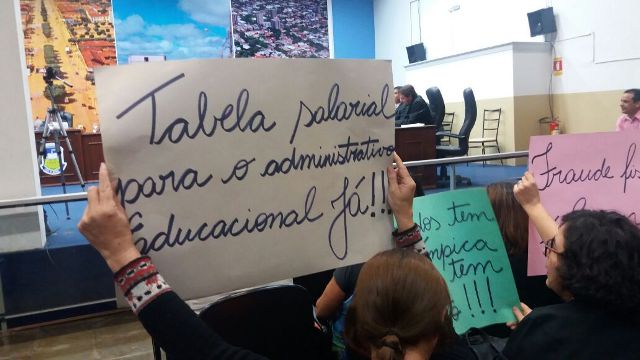 Tabela salarial
para o administrativo
Educacional Já!!!
dos tem
ímpica
tem
!!!
Fraude